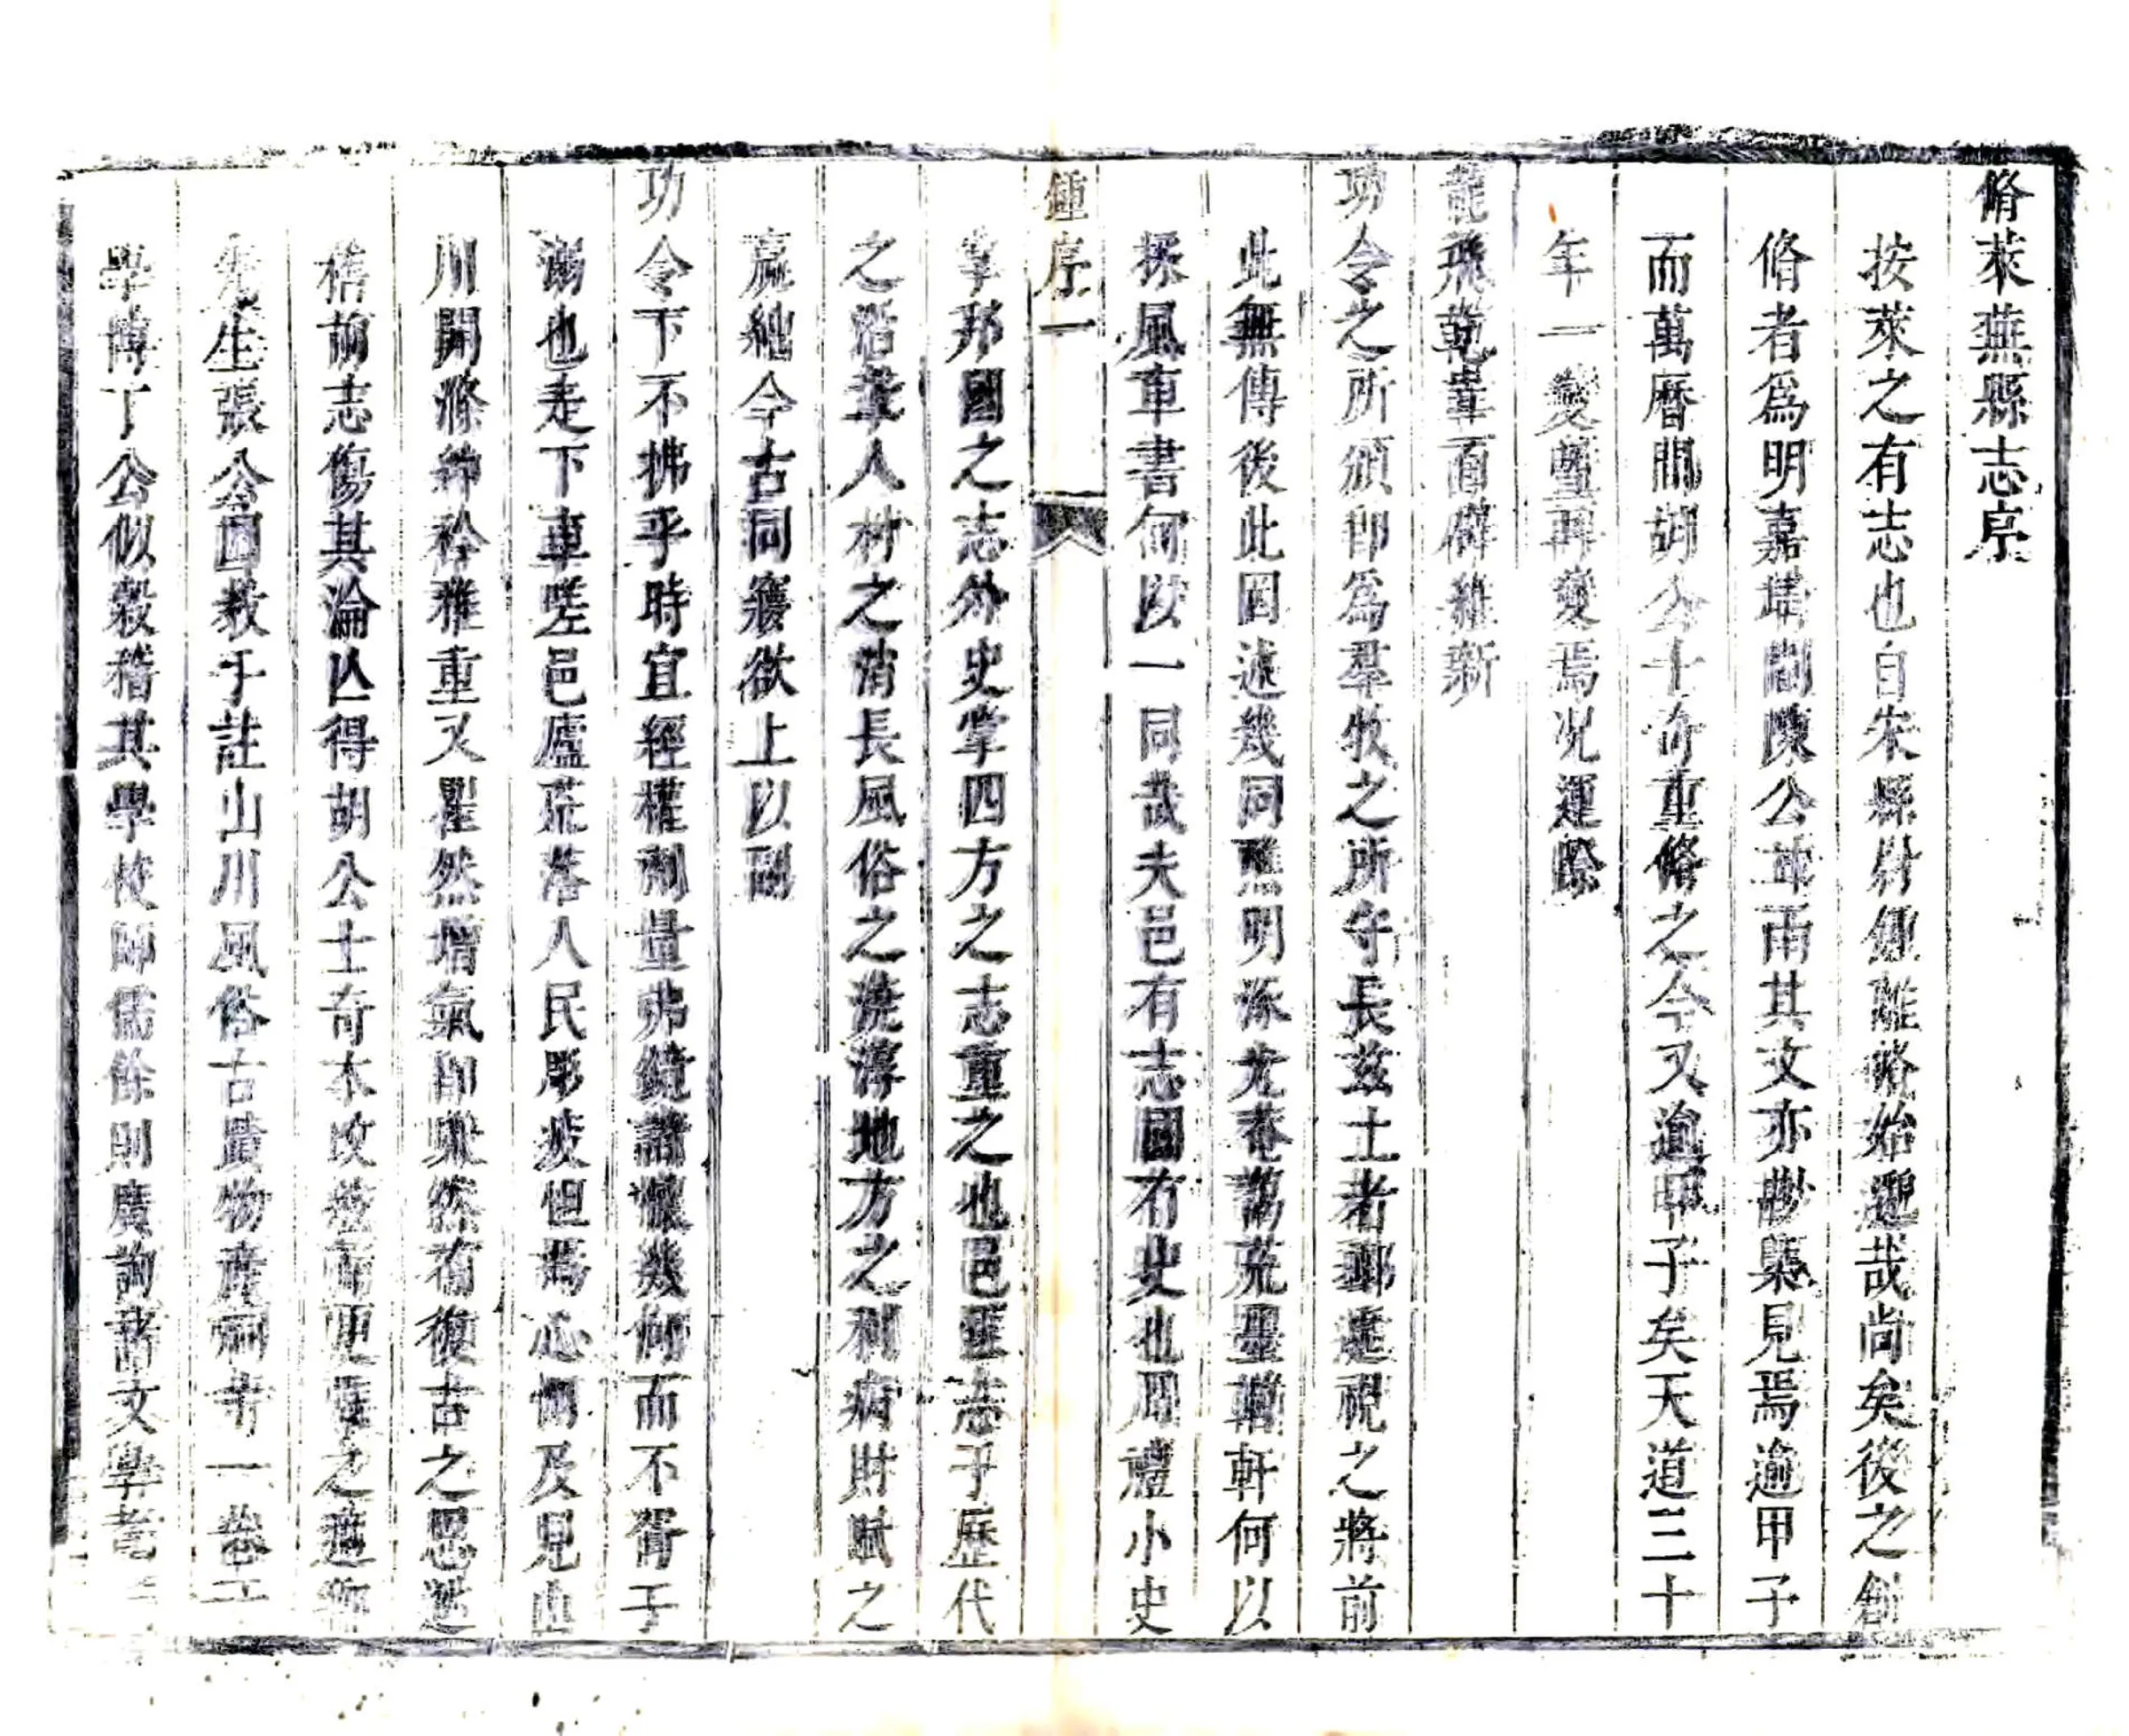 脩萊蕪縣志序
按萊之有志也自宋縣尉鍾離脩始邈哉尚矣後之創
脩者爲明嘉靖間陳公甘雨其文亦尠槩見焉逾甲子
而萬曆間胡公士奇重脩之今又逾甲子矣天道三十
年一變壟再變焉況運際
龍飛乾車百辟維新
功令之所頒卽爲羣牧之所守長茲土者郵遞視之將前
此無傳後此罔述幾同熙明涿尢菴蔼荒墨鞱軒何以
採風車書何以一同哉夫邑有志國有史也周禮小史
鍾序一
掌邦國之志外史掌四方之志重之也邑匪志乎歷代
之沿革人材之消長風俗之澆淳地方之利病財賦之
羸絀今古同寢欲上以副
功令下不拂乎時宜經權劑量弗鏡諸懷幾何而不胥于
溺也走下車嗟邑廬荒落人民彫疲怛焉心惻及見山
川開滌紳衿雅重又瞿然增氣卽興然有復古之思迺
稽前志傷其淪亾得胡公士奇本攻蠹而更理之適鄉
先生張公四教手註山川風俗古蹟物產祠寺一卷工
學博丁公似穀稽其學校師儒餘則廣詢諸文學耆